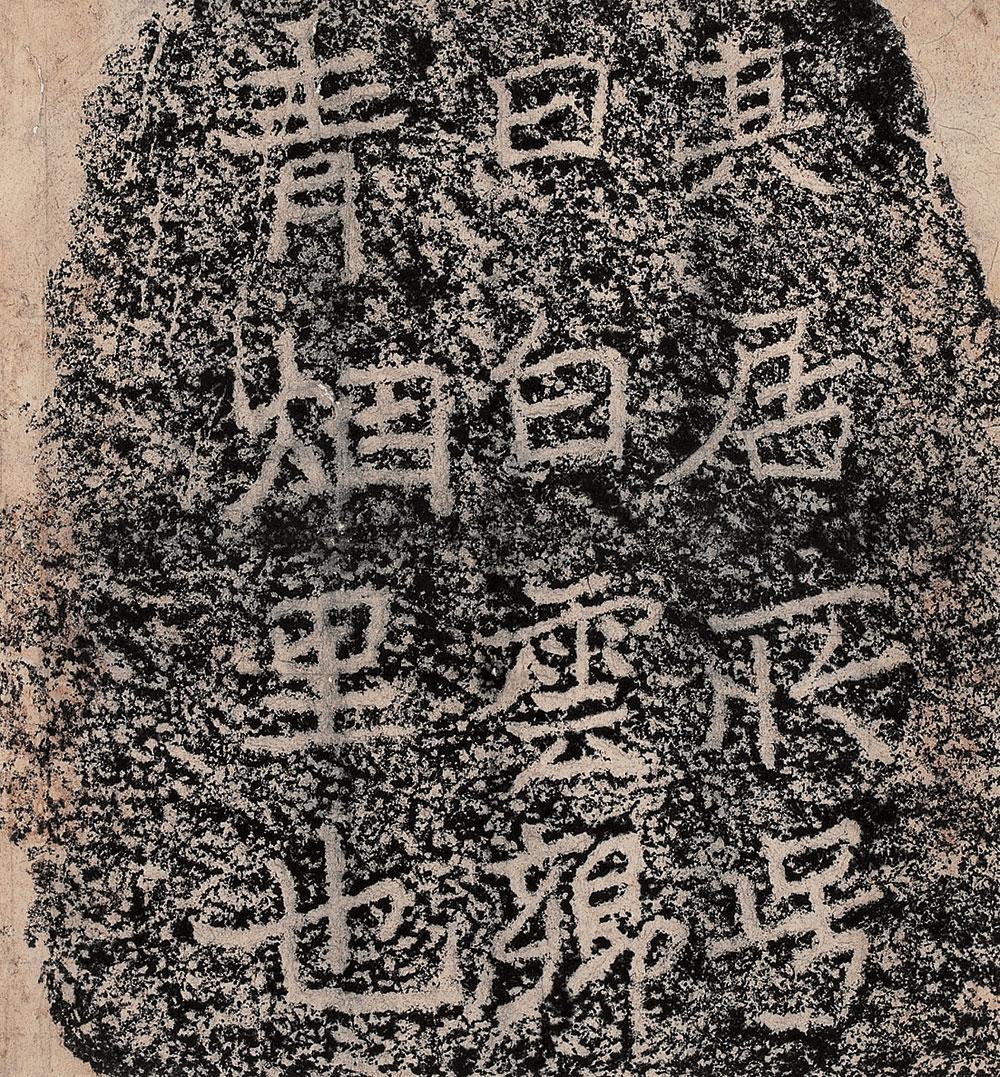 其居所号
曰白雲鄉
青烟里也